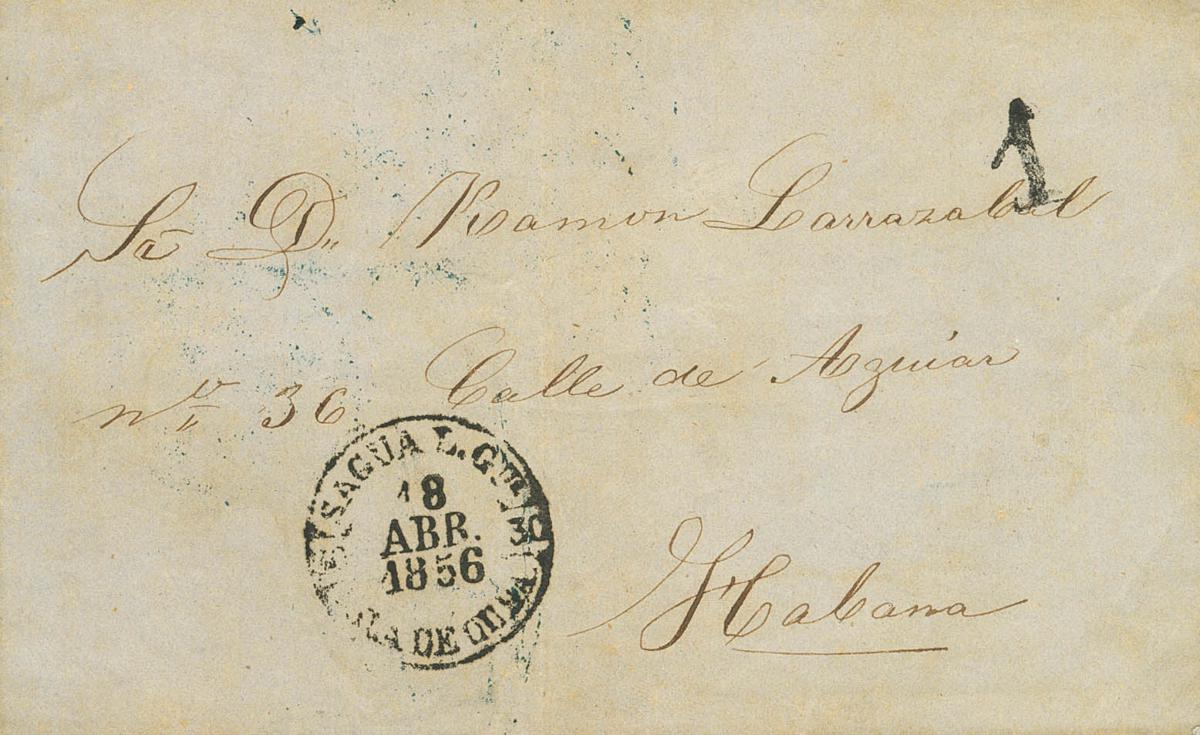 1
Sr. Dn. Ramon Larrazabal
no. 36 Calle de Aguiar
SAGUA L. G
18
ABR.
1856
30
DE CUBA
Habana